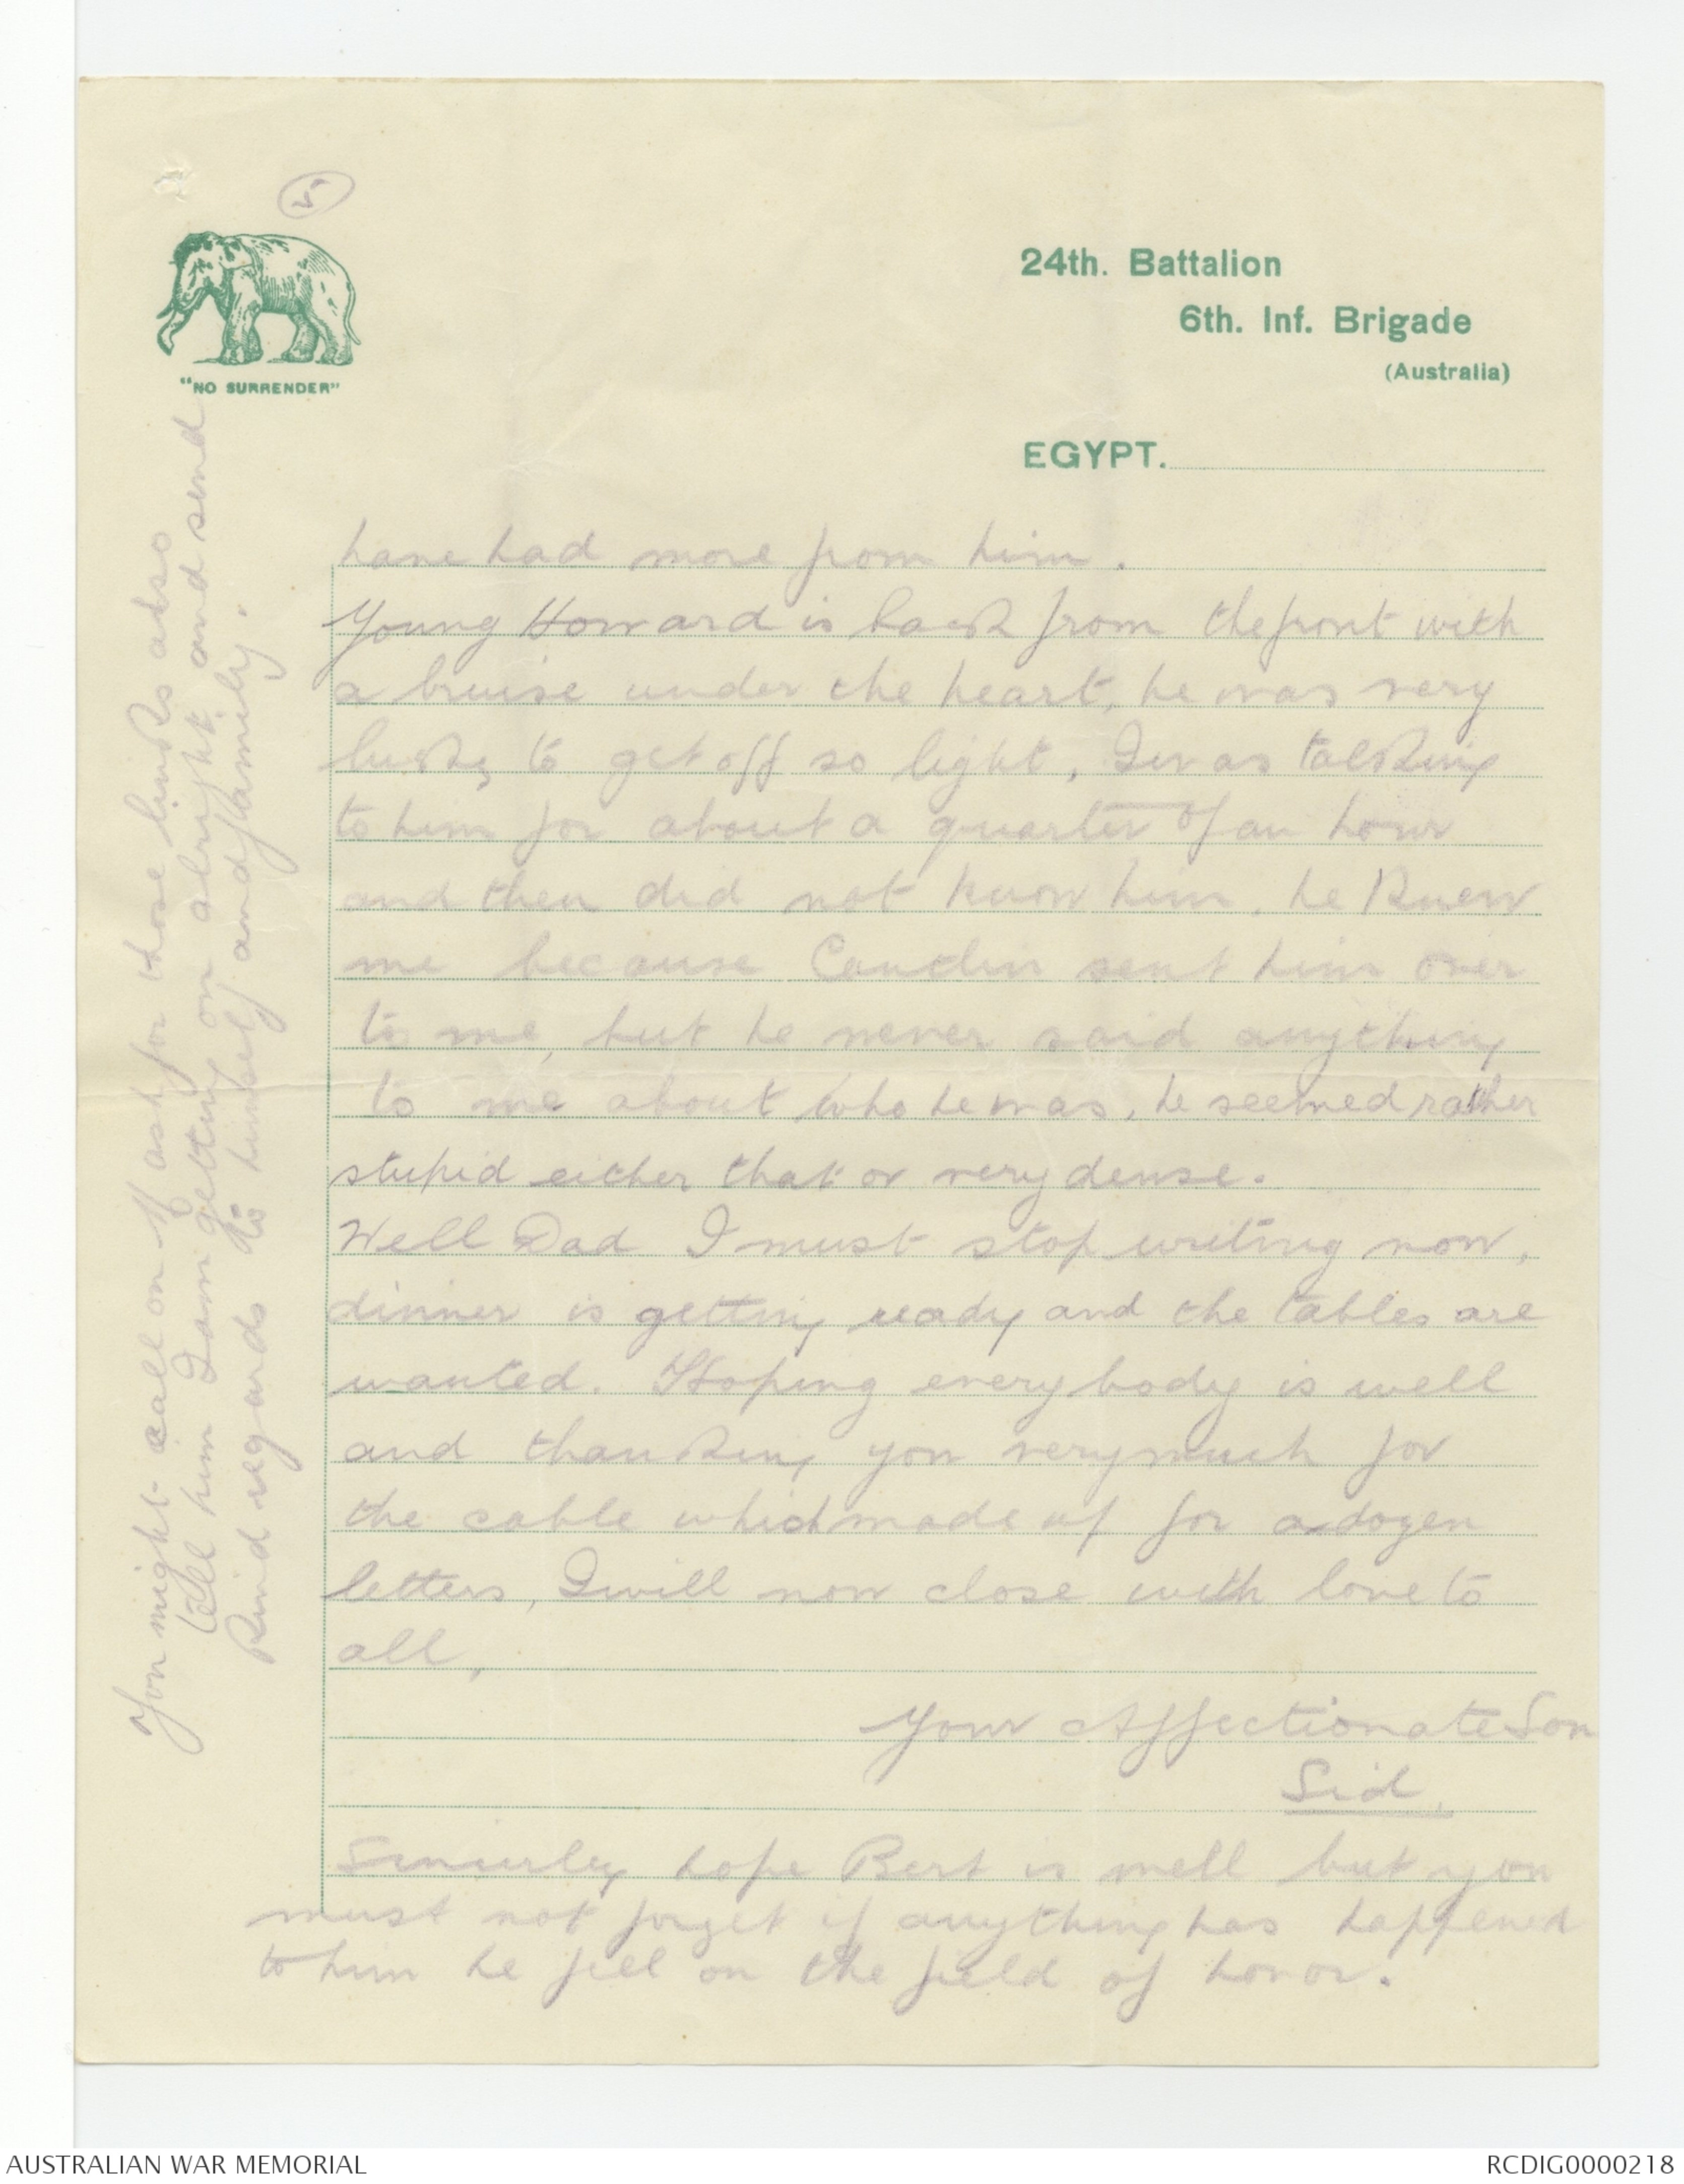 5
"NO SURRENDER"
24th. Battalion
6th. Inf. Brigade
(Australia)
EGYPT.
have had more from him.
Young Howard is back from the front with
a bruise under the heart, he was very
lucky to get off so light, I was talking
to him for about a quarter of an hour
and then did not know him, he knew
me because sent him over
to me, but he never said anything
to me about who he was, he seemed rather
stupid either that or very dense.
Well Dad I must stop writing now,
dinner is getting ready and the tables are
wanted. Hoping everybody is well
and thanking you very much for
the cable which made up for a dozen
letters, I will now close with love to
all,
Your Affectionate Son
Sid.
Sincerley hope Bert is well but you
must not forget if anything has happened
to him he fell on the field of honor.
You might call on ask for those also
tell him I am getting on alright and send
kind regards to himself and family.
AUSTRALIAN WAR MEMORIAL
RCDIG0000218